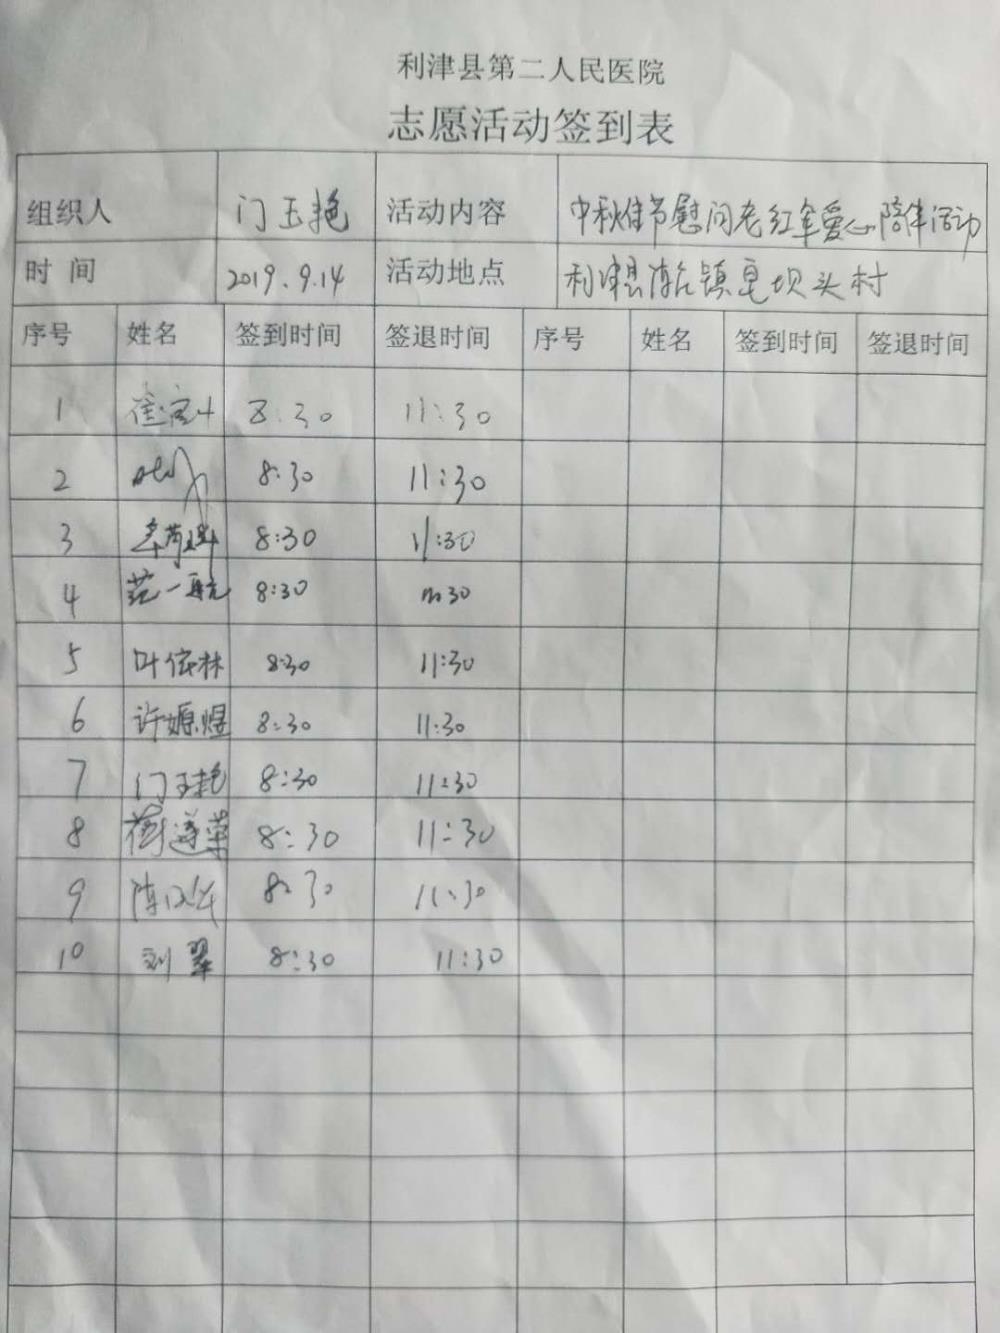 利津县第二人民医院
志愿活动签到表
组织人 门玉艳 活动内容 中秋佳节慰问老红军爱心陪伴活动
时 间 2019.9.14 活动地点 利津县陈庄镇皂坝头村
序号 姓名 签到时间 签退时间 序号 姓名 签到时间 签退时间
1 8:30 11:30
2 8:30 11:30
3 8:30 11:30
4 范一航 8:30 11:30
5 叶依林 8:30 11:30
6 许嫄煜 8:30 11:30
7 门玉艳 8:30 11:30
8 8:30 11:30
9 8:30 11:30
10 刘翠 8:30 11:30